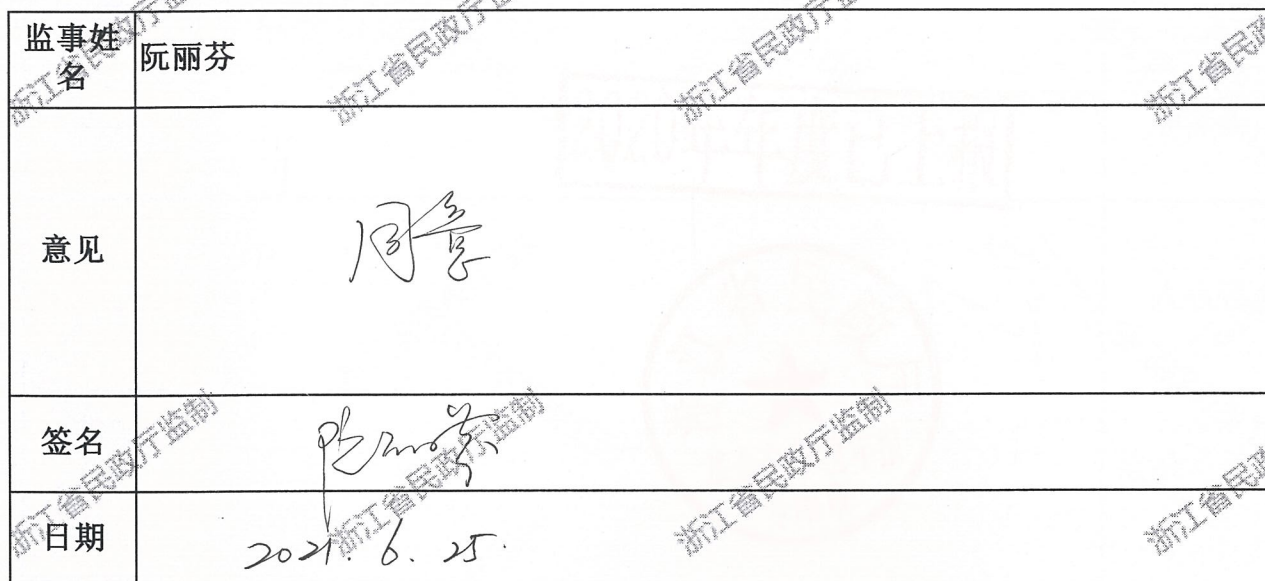 监事姓名
阮丽芬
意见
同意
签名
阮丽芬
日期
2021.6.25.
浙江省民政厅监制
浙江省民政厅监制
浙江省民政厅监制
浙江省民政厅监制